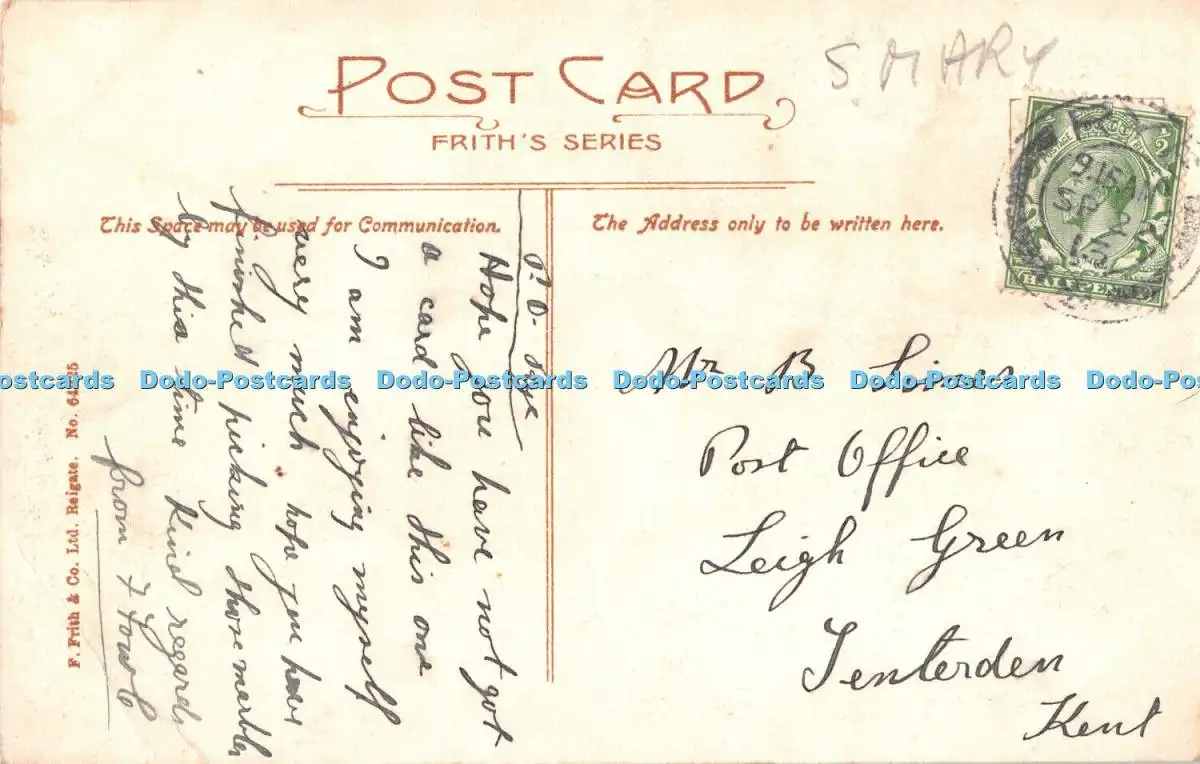 S. MARY
POST CARD
FRITH'S SERIES
This Space may be used for Communication.
The Address only to be written here.
HALFPENNY
9.15 AM
SP 2
15
P.O. Rye
Hope you have not got
a card like this one
I am enjoying myself
very much hope you have
finished picking those marbles
by this time Kind regards
from F
Mr B
Post Office
Leigh Green
Tenterden
Kent
F. Frith & Co. Ltd. Reigate. No.
Dodo-Postcards Dodo-Postcards Dodo-Postcards Dodo-Postcards Dodo-Postcards